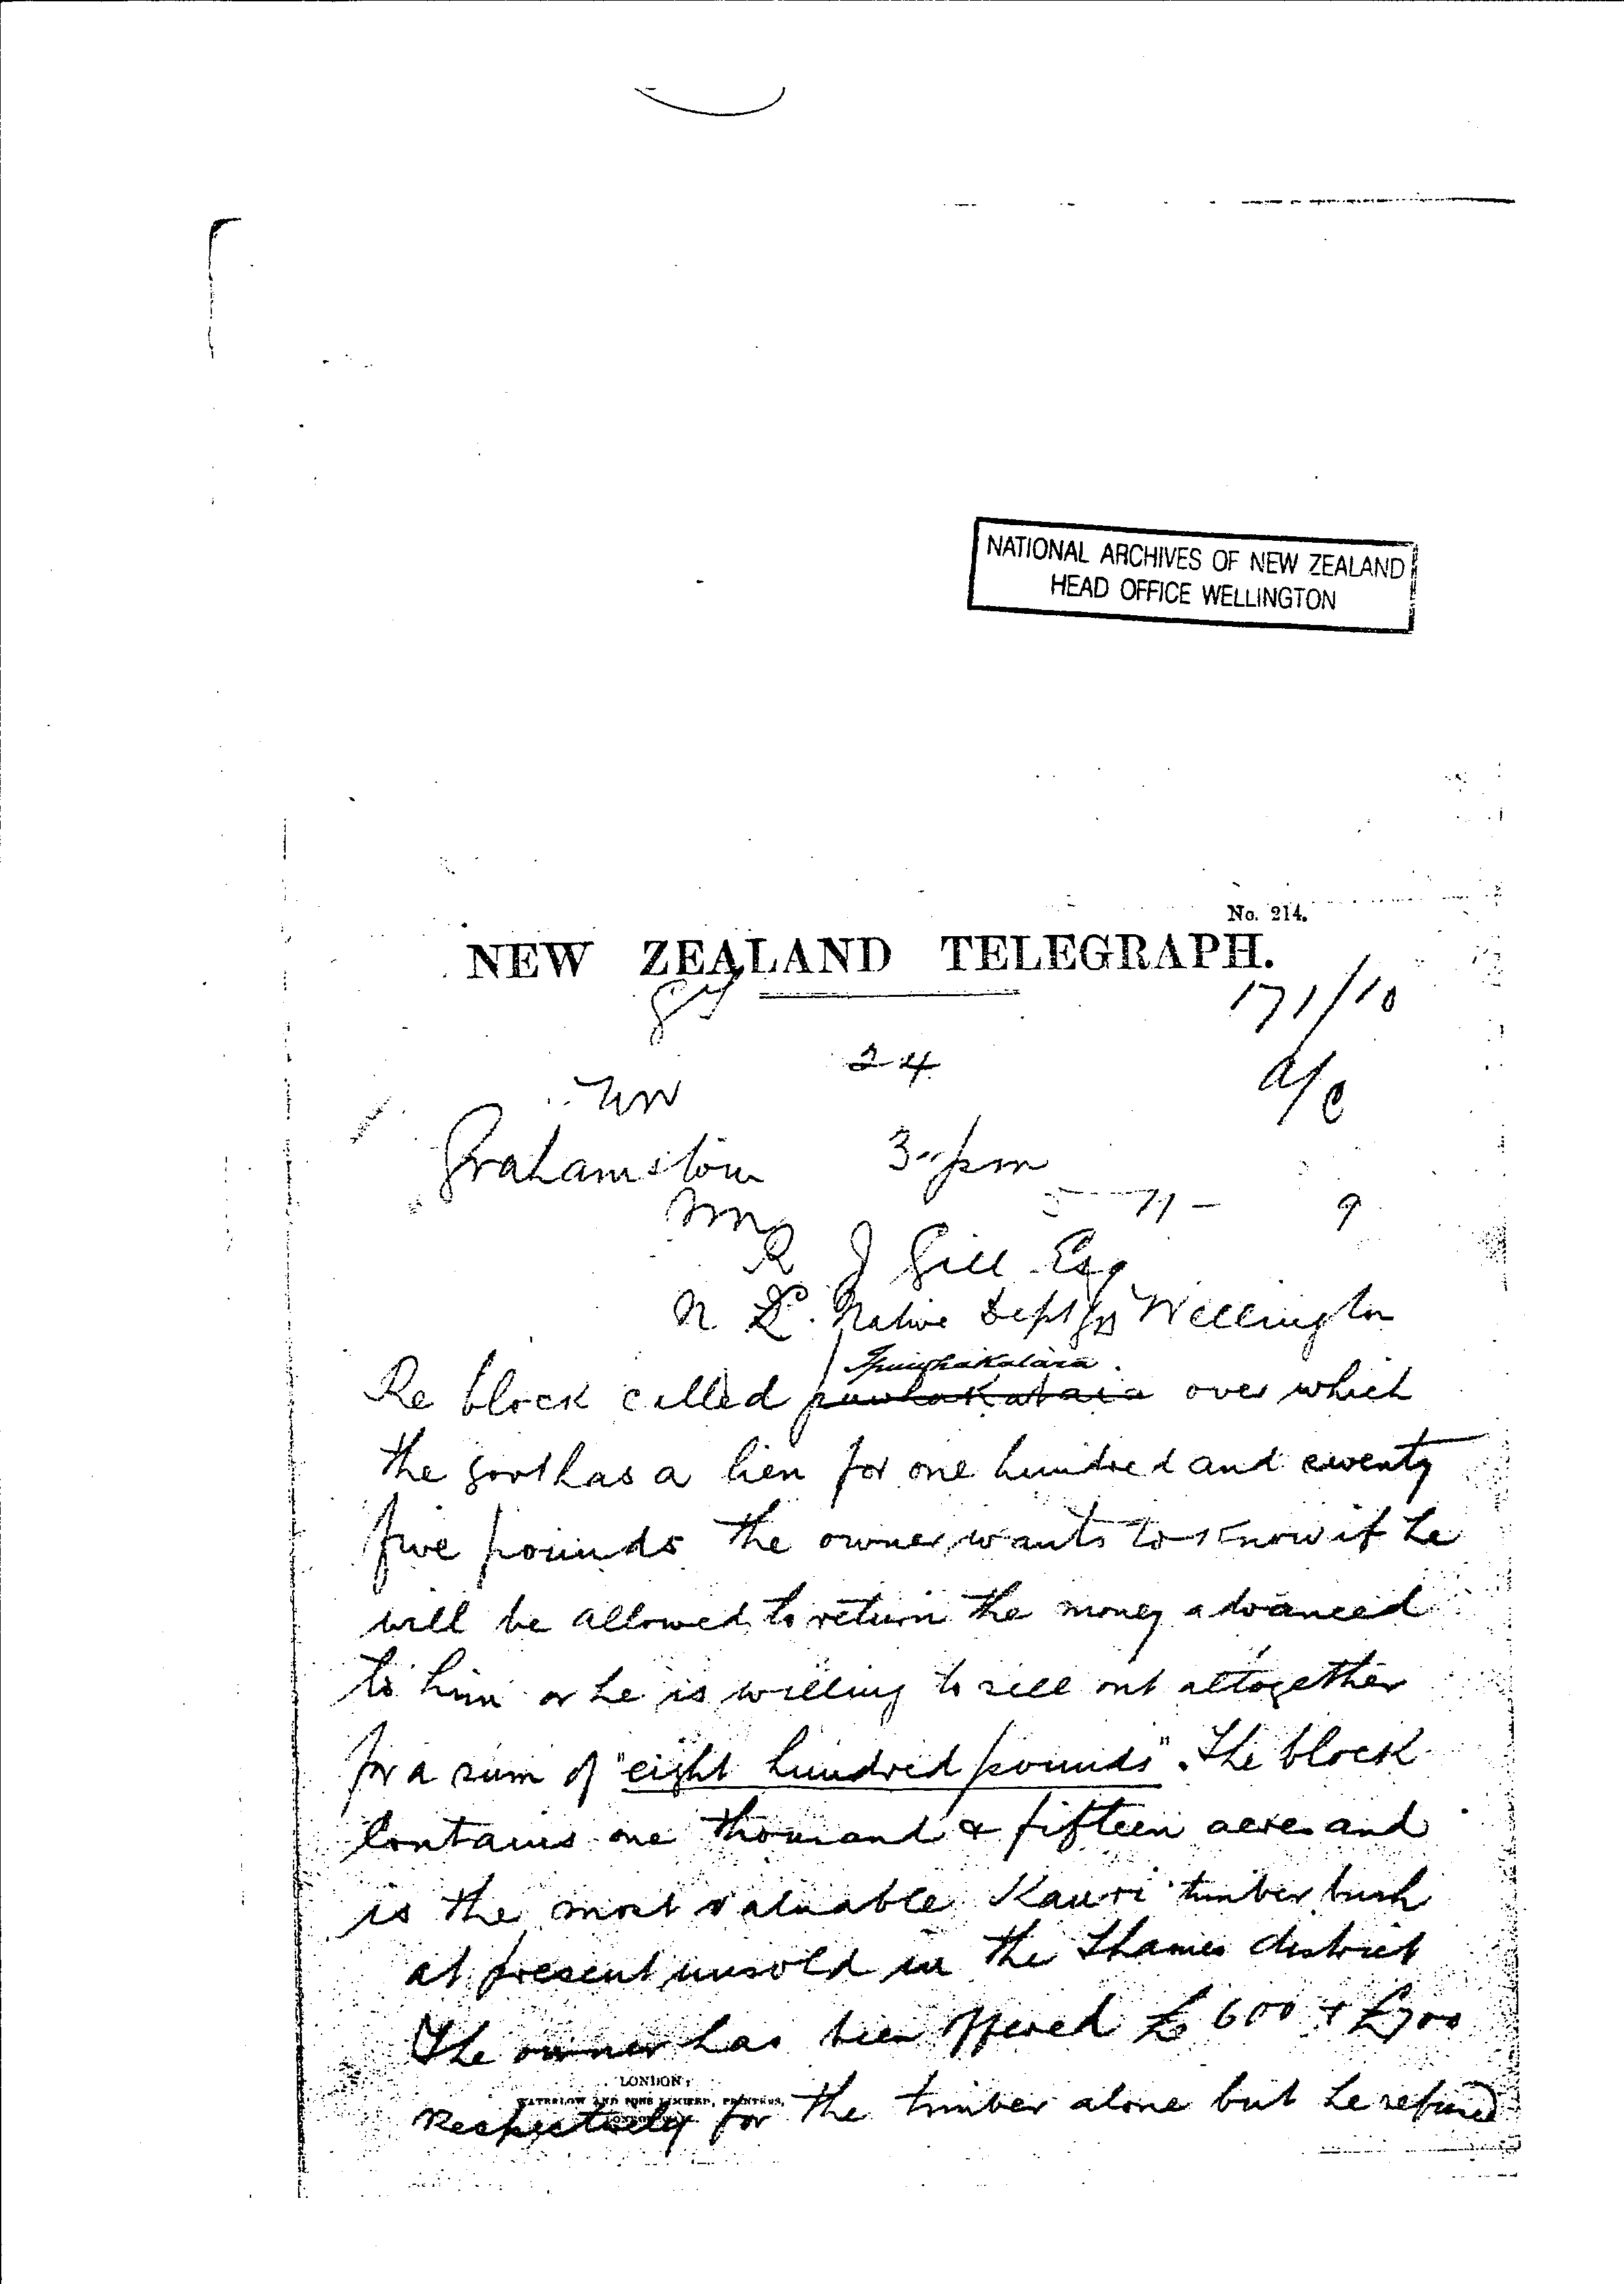 NATIONAL ARCHIVES OF NEW ZEALAND
HEAD OFFICE WELLINGTON
No. 214.
NEW ZEALAND TELEGRAPH.
171/10
24
Grahamstown 3 pm
R J Gill Esq
Native Dept Wellington
Re block called over which
the govt has a lien for one hundred and twenty
five pounds the owner wants to know if he
will be allowed to return the money advanced
to him or he is willing to sell out altogether
for a sum of "eight hundred pounds". The block
Contains one thousand & fifteen acres and
is the most valuable Kauri timber bush
at present unsold in the Thames district
The owner has been offered £600 & £700
LONDON:
WATERLOW AND SONS LIMITED, PRINTERS,
Respectively for the timber alone but he refused